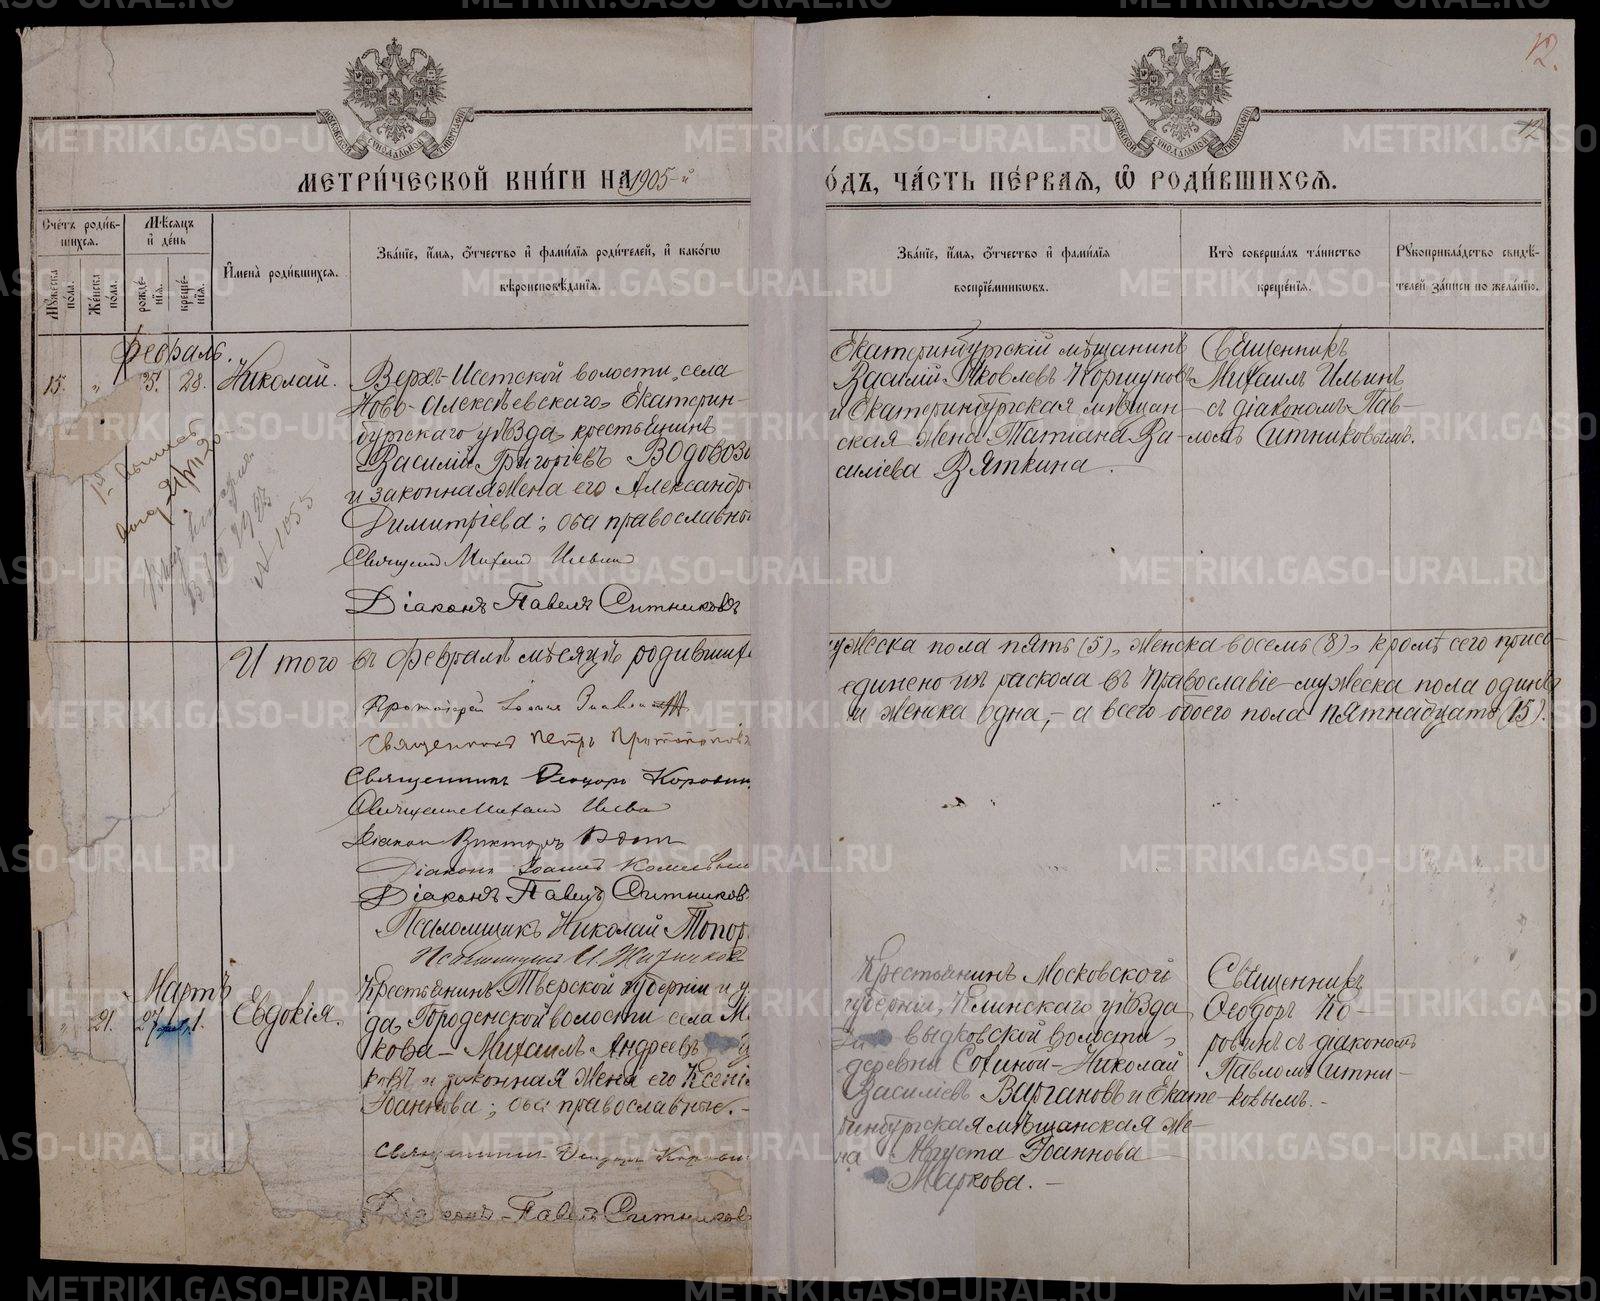 12.
12
МОСКОВСКОЙ СѴНОДАЛЬНОЙ ТИПОГРАФІИ
МОСКОВСКОЙ СѴНОДАЛЬНОЙ ТИПОГРАФІИ
МЕТРИ́ЧЕСКОЙ КНИ́ГИ НА 1905-й
О́ДЪ, ЧА́СТЬ ПЕ́РВАЯ, Ѽ РОДИ́ВШИХСЯ.
Сче́тъ роди́в-
шихся.
Мѣ́сяцъ
и҆ де́нь
Мꙋ́жеска
по́ла.
Же́нска
по́ла.
рожде́-
нїя.
креще́-
нїя.
И҆мена̀ роди́вшихся.
Зва́нїе, и҆́мя, ѻ҆́тчество и҆ фами́лїя роди́телей, и҆ како́гѡ
вѣроисповѣ́данїя.
Зва́нїе, и҆́мя, ѻ҆́тчество и҆ фами́лїя
воспрїе́мниковъ.
Кто̀ соверша́лъ та́инство
креще́нїя.
Рꙋкоприкла́дство свидѣ́-
телей за́писи по жела́нїю.
Февраль.
15. " 25. 28. Николай.
Верхъ-Исетской волости, села
Ново-Алексѣевскаго, Екатерин-
бургскаго уѣзда, крестьянинъ
Василій Григорьевъ Водовоз
и законная жена его Александр
Димитріева; оба православны
Священ Михаил Ильин
Діаконъ Павелъ Ситниковъ
№ 1055
Екатеринбургскій мѣщанинъ
Василій Яковлевъ Коршуновъ
и Екатеринбургская мѣщан-
ская жена Татіана Ва-
силіева Вяткина.
Священникъ
Михаилъ Ильинъ
съ діакономъ Пав-
ломъ Ситниковымъ.
Итого въ февралѣ мѣсяцѣ родивших
мужеска пола пять (5), женска восемь (8), кромѣ сего присо-
единено изъ раскола въ Православіе - мужеска пола одинъ
и женска одна, - а всего обоего пола пятнадцать (15).
Протоіерей Іоаннъ
Священникъ Петръ Протопоповъ
Священникъ Ѳеодоръ Коровин
Священ Михаил
Діакон Викторъ
Діаконъ Іоаннъ
Діаконъ Павелъ Ситников
Псаломщикъ Николай Топор
Псаломщик И
Мартъ
" 21. 27 1. Евдокія.
Крестьянинъ Тверской губерніи и у
да, Городенской волости села М
кова - Михаилъ Андреевъ
ковъ и законная жена его Ксені
Іоаннова; оба православные. -
Священник Ѳеодоръ Коровин
Діаконъ Павелъ Ситников
Крестьянинъ Московской
губерніи, Клинскаго уѣзда,
выдковской волости,
деревни Сохиной - Николай
Василіевъ Варгановъ и Екате-
ринбургская мѣщанская же-
на Августа Іоаннова
Маркова. -
Священникъ
Ѳеодоръ Ко-
ровинъ съ діакономъ
Павломъ Ситни-
ковымъ. -
METRIKI.GASO-URAL.RU